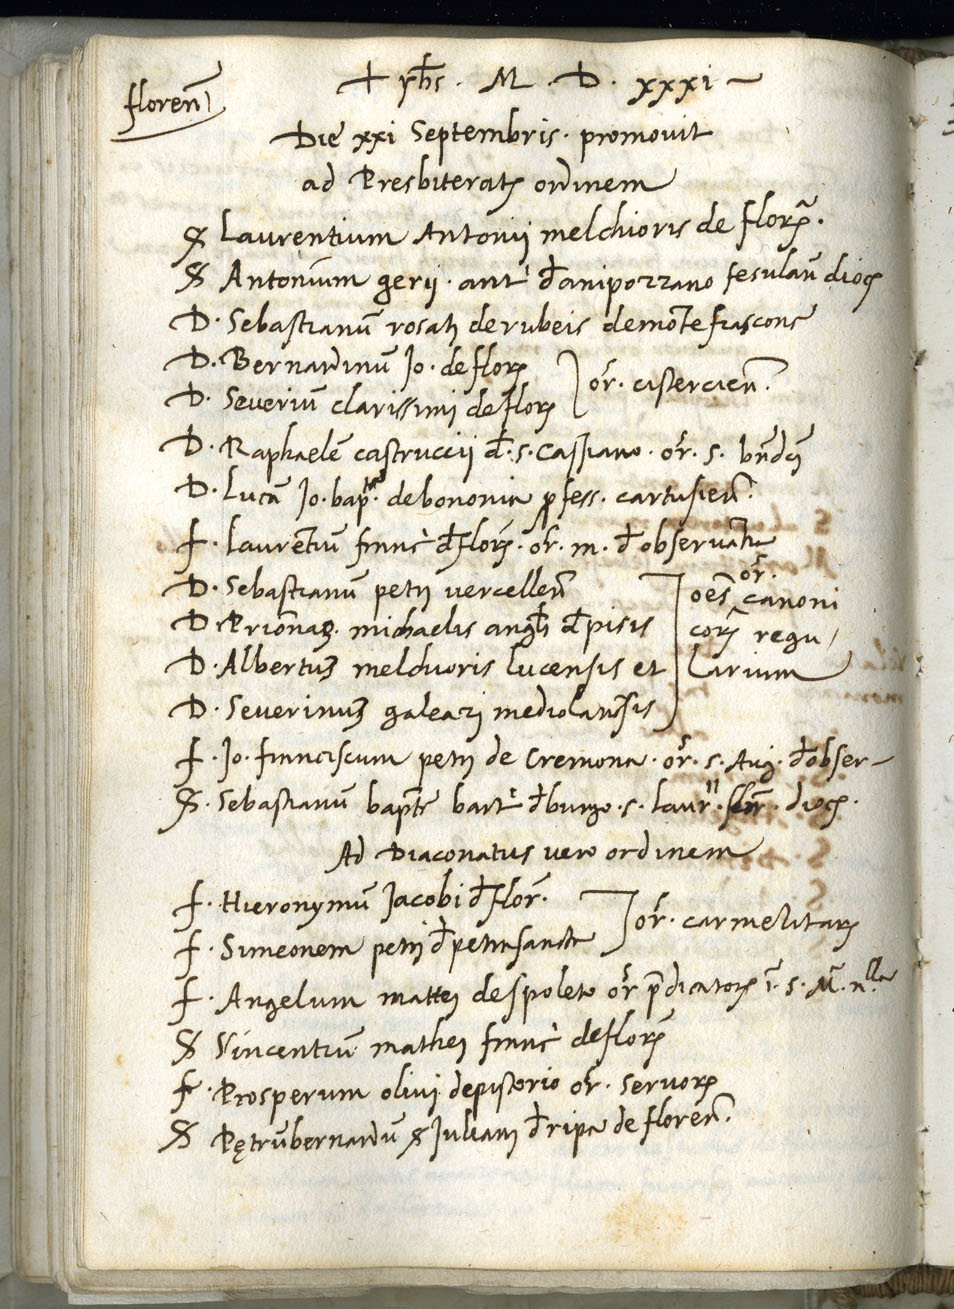 florenñ
+ yħs · M · D · xxxi ~
Die xxi Septembris · promovit
ad Presbiteratꝫ ordinem
S Laurentium Antonii melchioris de florꝫ ·
S Antonium gerij · ant d̄anipozzano fesulan̄ dioc
D · Sebastianū rosati de rubeis de mōte frascone
D · Bernardinū Jo · de florꝫ
D · Severiū clarissimi de florꝫ
or̄ · cistercien̄ ·
D · Raphaelē castruccij d̄ · s · Cassiano · or̄ · s · bn̄dci
D · Lucā Jo · bapᵗᵉ · de bononia ꝓfess · cartusien̄ ·
f · Laurētiū franc d̄ florꝫ · or̄ · m · d̄ observātia
D · Sebastianū petri vercellen̄
D · michaelis angli d̄ pisis
D · Albertuꝫ melchioris lucensis et
D · Severinuꝫ galeazi mediolan̄sis
oēs or̄ · canoni
corꝫ regu
larium
f · Jo · franciscum petri de Cremona · or̄ · s · Aug · d̄ obser–
S · Sebastianū bapte bart d̄ burgo · s · laurⁱⁱ · · dioc ·
Ad Diaconatus vero ordinem
f · Hieronymū Jacobi d̄ flor̄ ·
f · Simeonem petri d̄ petrasancta
or̄ · carmelitarꝫ
f · Angelum mattei de spoleto or̄ p̄dicatorꝫ ī · s · M̄ · nˡˡᵃ
S Vincentiū mathei franc de florꝫ
f · Prosperum olivi de pistorio or̄ · servorꝫ
S Petrūbernardū Juliani d̄ ripa de floren̄ ·